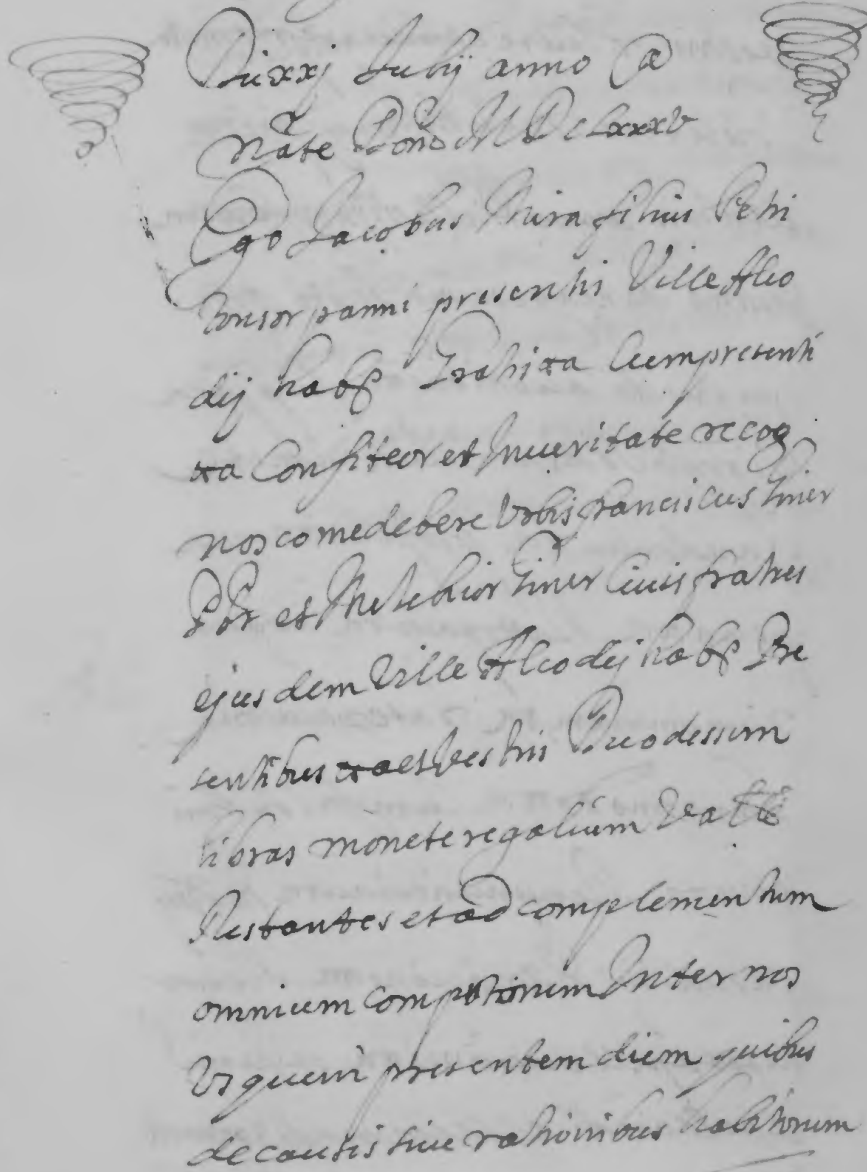 Die xxj Julij anno a
Nate Dons MDCLxxxv
Ego Jacobus Mira filius Petri
tonsor panni presentis Ville Alco
dij habr Gratis xa Cum presenti
xa Confiteor et In veritate recog
nosco me debere Vobis franciscus Giner
et Melchior Giner Civis fratres
ejusdem Ville Alcodij habr Pre
sentibus xa et Vestris Duodessim
libras monete regalium Vale
Restantes et ad complementum
omnium compotorum Inter nos
Usque in presentem diem quibus
de causis sive rationibus habitorum